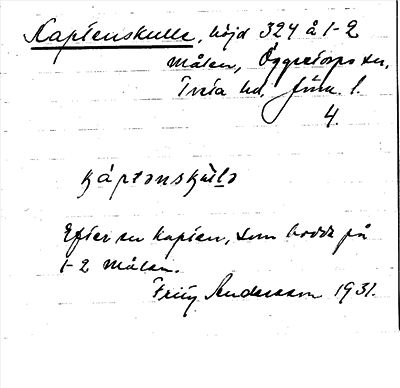 Kaptenskulle, höjd 324 å 1-2
Målen, Öggestorps sn,
Tveta hd. Jönk. l.
4.
káptənskùlə
Efter en kapten, som bodde på
1-2 Målen.
Fritz Andersson 1931.